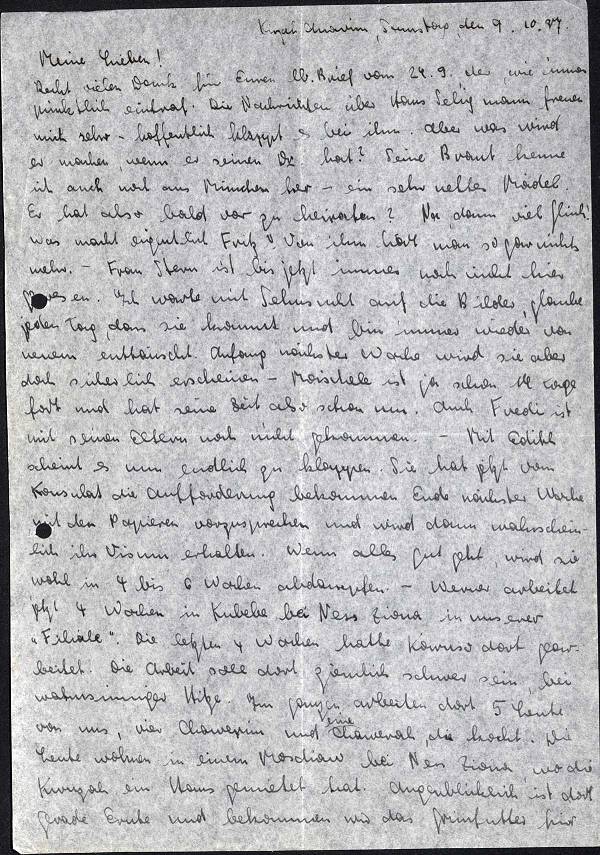 Kirjath Anavim, Samstag, den 9. 10. 37.
Meine Lieben!
Recht vielen Dank für Euren lb. Brief vom 24. 9. der, wie immer
pünktlich eintraf. Die Nachrichten über Hans Seligmann freuen
mich sehr - hoffentlich klappt es bei ihm. Aber was wird
er machen, wenn er seinen Dr. hat? Seine Braut kenne
ich auch noch aus München her - ein sehr nettes Mädel.
Er hat also bald vor zu heiraten? Na, dann viel Glück!
Was macht eigentlich Fritz? Von ihm hört man so gar nichts
mehr. - Frau Stern ist bis jetzt immer noch nicht hier
gewesen. Ich warte mit Sehnsucht auf die Bilder, glaube
jeden Tag, dass sie kommt und bin immer wieder von
neuem enttäuscht. Anfang nächster Woche wird sie aber
doch sicherlich erscheinen - Moischele ist ja schon 14 Tage
fort und hat seine Zeit also schon um. Auch Fredi ist
mit seinen Eltern noch nicht gekommen. - Mit Edith
scheint es nun endlich zu klappen. Sie hat jetzt vom
Konsulat die Aufforderung bekommen Ende nächster Woche
mit den Papieren vorzusprechen und wird dann wahrschein-
lich ihr Visum erhalten. Wenn alles gut geht, wird sie
wohl in 4 bis 6 Wochen abdampfen. - Werner arbeitet
jetzt 4 Wochen in Kubebe bei Ness Ziona in unserer
"Filiale". Die letzten 4 Wochen hatte dort gear-
beitet. Die Arbeit soll dort ziemlich schwer sein, bei
wahnsinniger Hitze. Im ganzen arbeiten dort 5 Leute
von uns, vier Chawerim und eine Chawerah, die kocht. Die
Leute wohnen in einem Moschaw bei Ness Ziona, wo die
Kwuzah ein Haus gemietet hat. Augenblicklich ist dort
gerade Ernte und bekommen wir das Grünfutter für